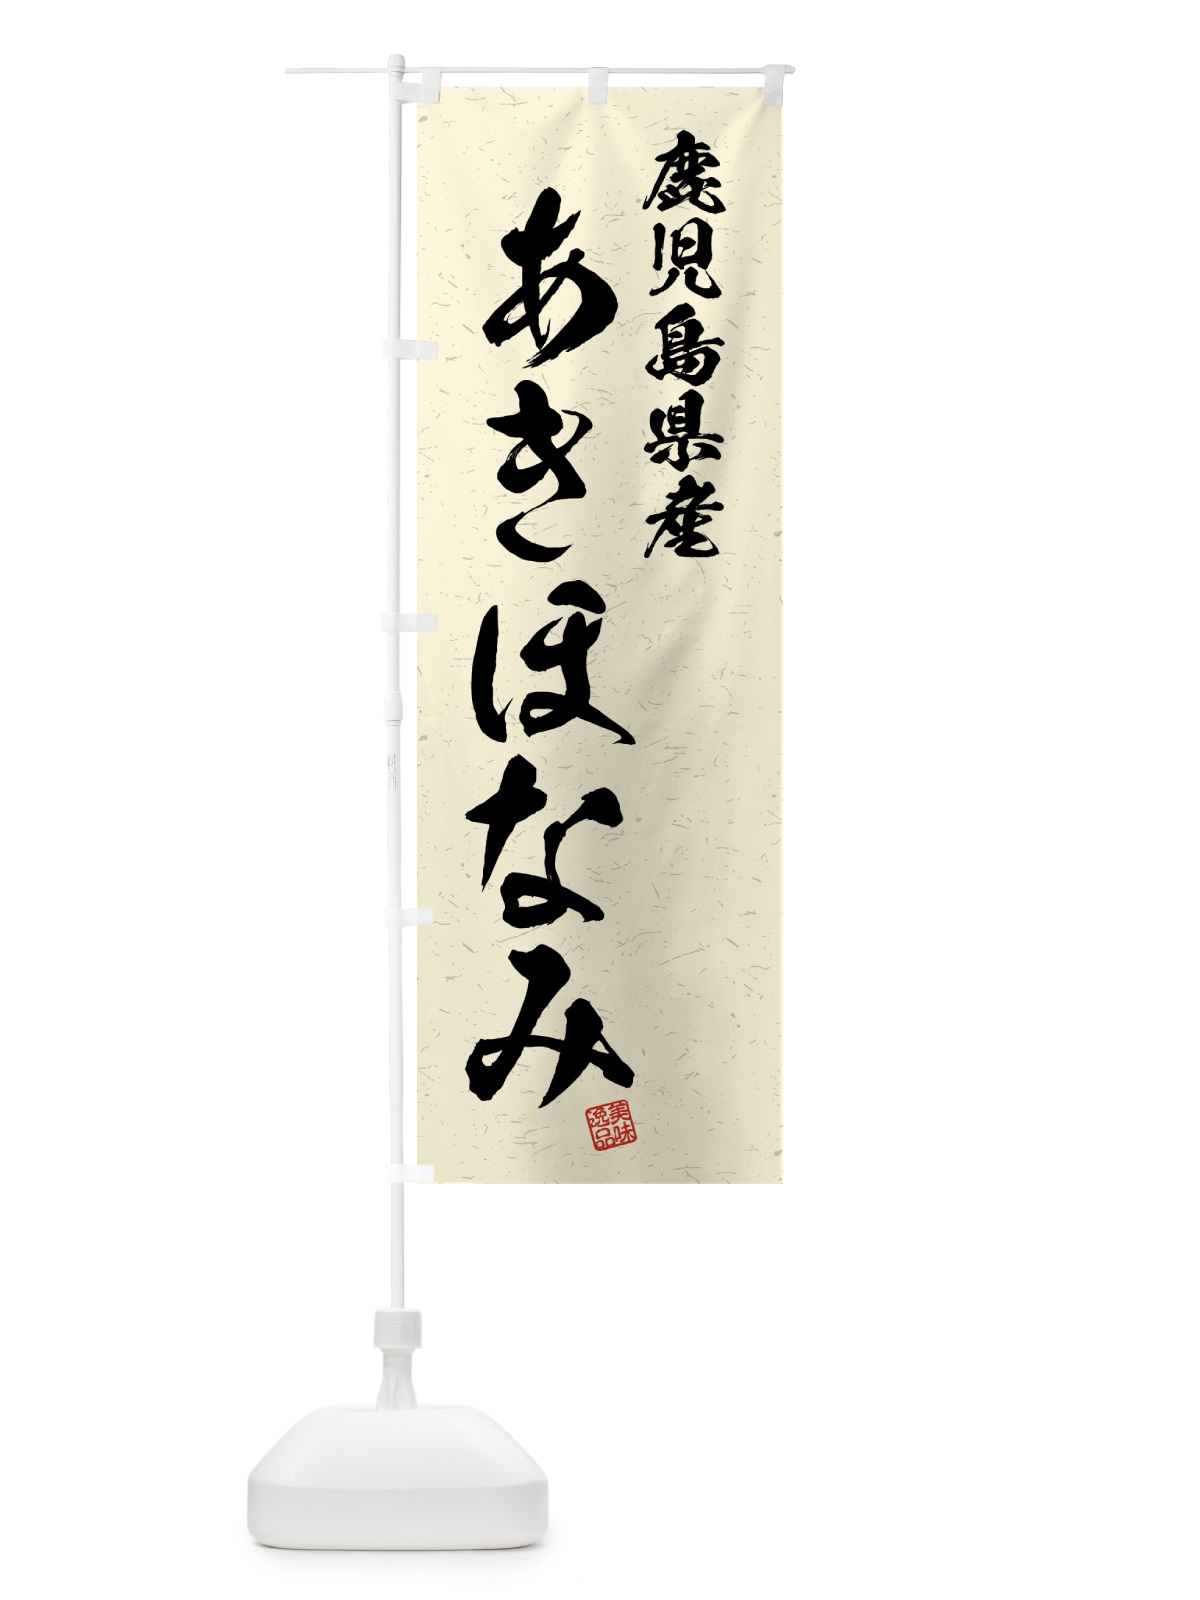 鹿児島県産
あきほなみ
美味
逸品